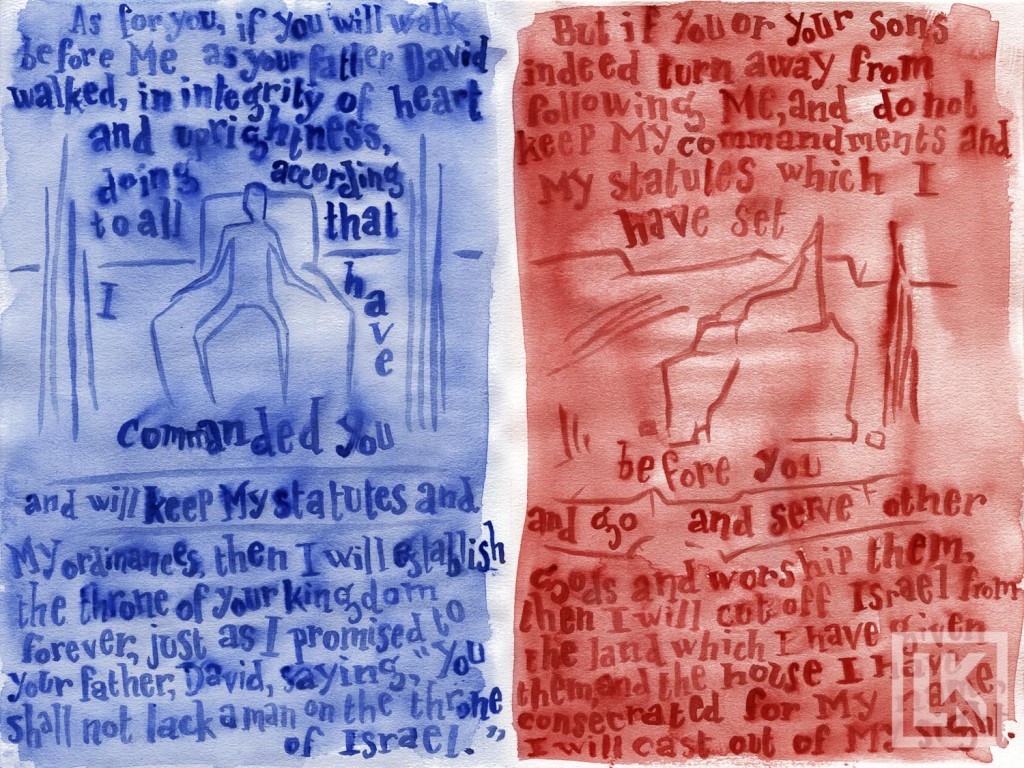 As for you, if you will walk
before Me as your father David
walked, in integrity of heart
and uprightness,
doing according
to all that
I have
commanded you
and will keep My statutes and
My ordinances, then I will establish
the throne of your kingdom
forever, just as I promised to
your father, David, saying, "You
shall not lack a man on the throne
of Israel."
But if you or your sons
indeed turn away from
following Me, and do not
keep My commandments and
My statutes which I
have set
before you
and go and serve other
gods and worship them,
then I will cut off Israel from
the land which I have given
them, and the house I have
consecrated for My name,
I will cast out of My sight.
LK